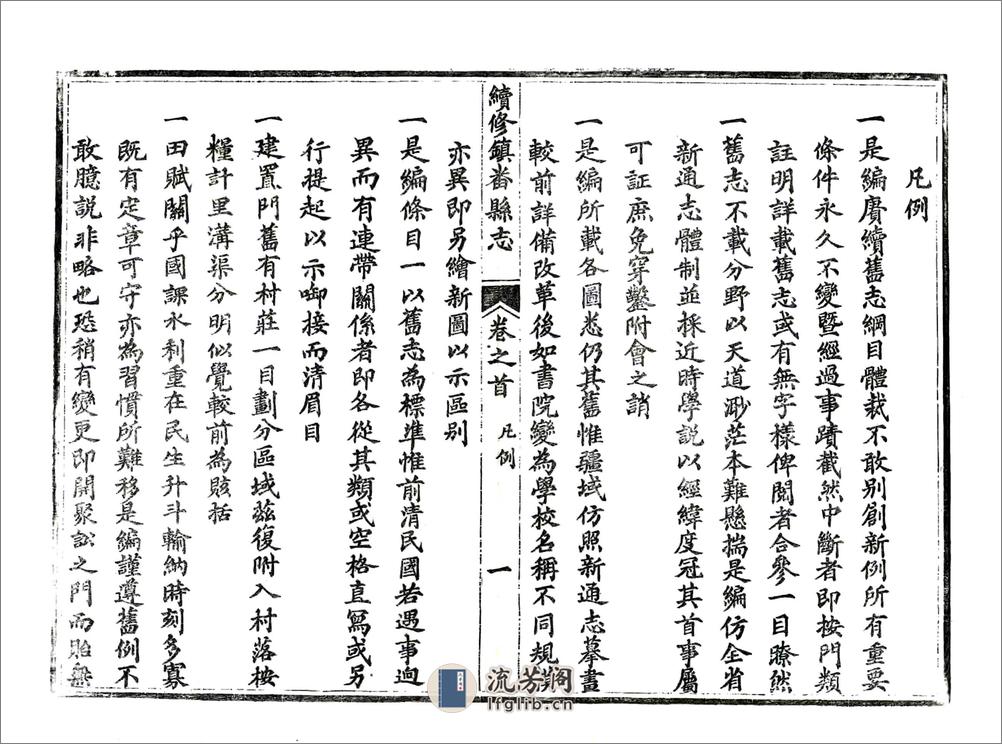 凡例
一是編賡續舊志綱目體裁不敢別創新例所有重要
條件永久不變暨經過事蹟截然中斷者即按門類
註明詳載舊志或有無字樣俾閱者合參一目瞭然
一舊志不載分野以天道渺茫本難懸揣是編仿全省
新通志體制並採近時學說以經緯度冠其首事屬
可証庶免穿鑿附會之誚
一是編所載各圖悉仍其舊惟疆域仿照新通志摹畫
較前詳備改革後如書院變為學校名稱不同規模
續修鎮番縣志
卷之首
凡例
一
亦異即另繪新圖以示區別
一是編條目一以舊志為標準惟前清民國若遇事迥
異而有連帶關係者即各從其類或空格直寫或另
行提起以示啣接而清眉目
一建置門舊有村莊一目劃分區域茲復附入村落按
糧計里溝渠分明似覺較前為賅括
一田賦關乎國課水利重在民生升斗輸納時刻多寡
既有定章可守亦為習慣所難移是編謹遵舊例不
敢臆說非略也恐稍有變更即開聚訟之門而貽無
流芳閣
lfglib.cn